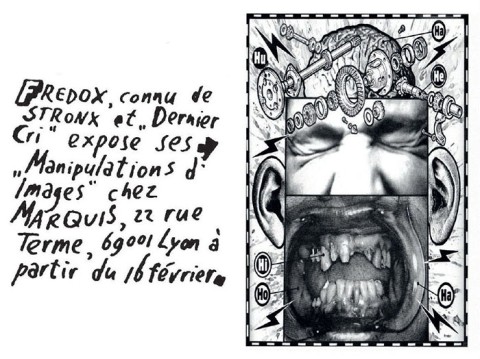 FREDOX, connu de
STRONX et „Dernier
Cri" expose ses
„Manipulations d'
Images" chez
MARQUIS, 22 rue
Terme, 69001 Lyon à
partir du 16 février.
Ha
Hu
He
Hi
Ho
Ha